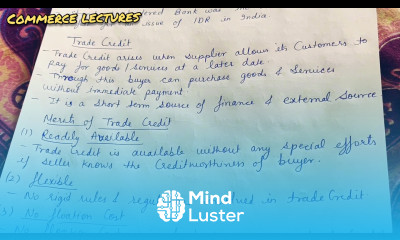 COMMERCE LECTURES
Bank was
issue of IDR in India.
Trade Credit
- Trade Credit arises when supplier allows its Customers to
pay for goods/services at a later date.
- Through this buyer can purchase goods & Services
without immediate payment
- It is a short term source of finance & external source
Merits of Trade Credit
(1) Readily Available
- Trade Credit is available without any special efforts
if seller knows the Creditworthiness of buyer.
(2) flexible
- No rigid rules & in trade Credit
(3) No floation Cost
Mind
Luster